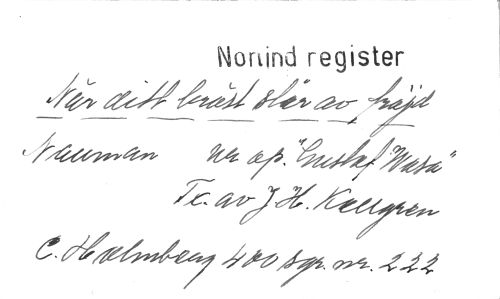 Norlind register
När ditt bröst slår av fröjd
Nauman ur op. "Gustaf Wasa"
Tx. av J. H. Kellgren
C. Holmberg 400 sgr. nr. 222